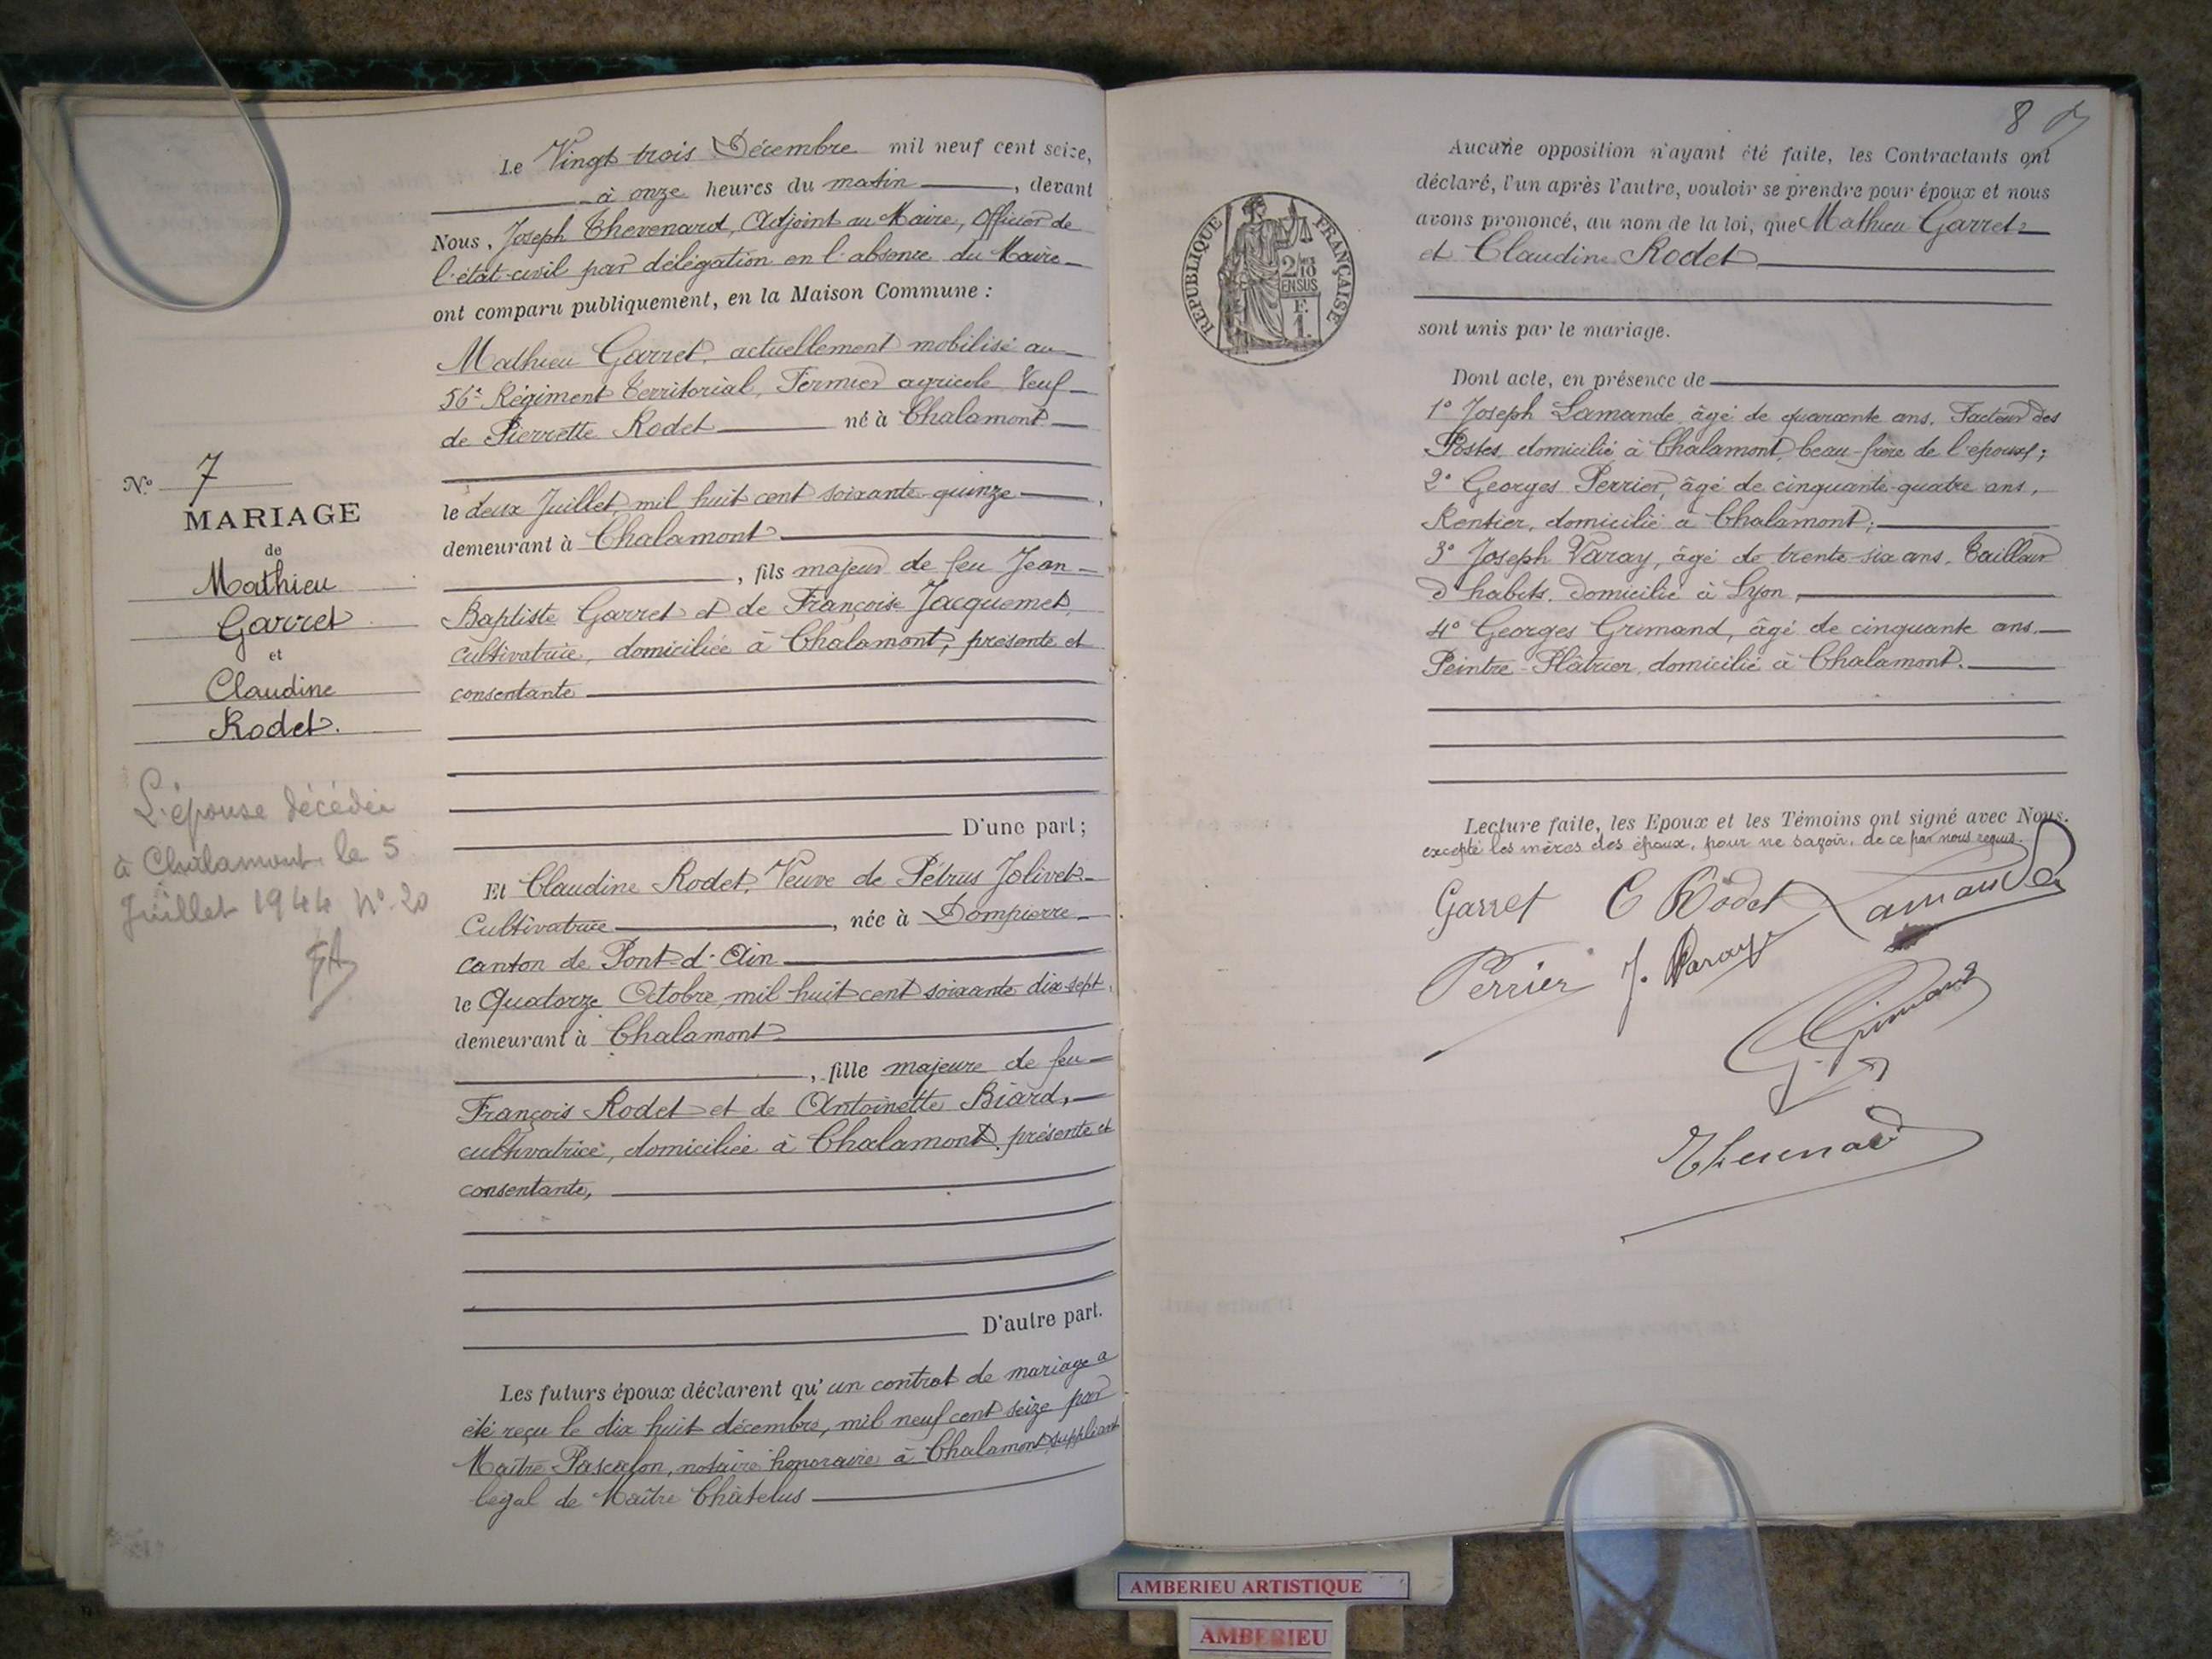 Le Vingt trois Décembre mil neuf cent seize,
à onze heures du matin, devant
Nous, Joseph Thevenard, Adjoint au Maire, Officier de
l'état-civil par délégation en l'absence du Maire
ont comparu publiquement, en la Maison Commune :
Mathieu Garret, actuellement mobilisé au
56e Régiment territorial, Fermier agricole Veuf
de Pierrette Rodet né à Chalamont
le deux Juillet mil huit cent soixante-quinze,
demeurant à Chalamont
, fils majeur de feu Jean-
Baptiste Garret et de Françoise Jacquemet,
cultivatrice, domiciliée à Chalamont, présente et
consentante
D'une part;
Et Claudine Rodet, Veuve de Pétrus Jolivet
Cultivatrice, née à Dompierre
canton de Pont-d'Ain
le Quatorze Octobre mil huit cent soixante dix-sept,
demeurant à Chalamont
, fille majeure de feu
François Rodet et de Antoinette Biard,
cultivatrice, domiciliée à Chalamont, présente et
consentante,
D'autre part.
Les futurs époux déclarent qu'un contrat de mariage a
été reçu le dix huit décembre, mil neuf cent seize par
Maître Pascalon, notaire honoraire à Chalamont suppléant
légal de Maître Châtelus
N° 7
MARIAGE
de
Mathieu
Garret
et
Claudine
Rodet.
L'épouse décédée
à Chalamont le 5
Juillet 1944 N° 20
8
Aucune opposition n'ayant été faite, les Contractants ont
déclaré, l'un après l'autre, vouloir se prendre pour époux et nous
avons prononcé, au nom de la loi, que Mathieu Garret
et Claudine Rodet
sont unis par le mariage.
Dont acte, en présence de
1° Joseph Lamande, âgé de quarante ans, Facteur des
Postes, domicilié à Chalamont, beau-frère de l'épouse;
2° Georges Perrier, âgé de cinquante-quatre ans,
Rentier, domicilié à Chalamont;
3° Joseph Varay, âgé de trente-six ans, Tailleur
d'habits, domicilié à Lyon,
4° Georges Grimand, âgé de cinquante ans,
Peintre-Plâtrier, domicilié à Chalamont.
Lecture faite, les Epoux et les Témoins ont signé avec Nous.
excepté les mères des époux, pour ne savoir, de ce par nous requis.
Garret C Rodet Lamande
Perrier J. Varay
G. Grimand
Thevenard
REPUBLIQUE FRANÇAISE
2/10
EN SUS
F.
1.
AMBERIEU ARTISTIQUE
AMBERIEU